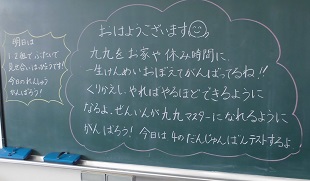 おはようございます
九九をお家や休み時間に、
一生けんめいおぼえてがんばってるね!!
くりかえしやればやるほどできるように
なるよ。ぜんいんが九九マスターになれるように
がんばろう! 今日は4のだんじゅんばんテストするよ
明日は
見せ合いっこがんばろうです!
今日のれんしゅう
がんばろう!